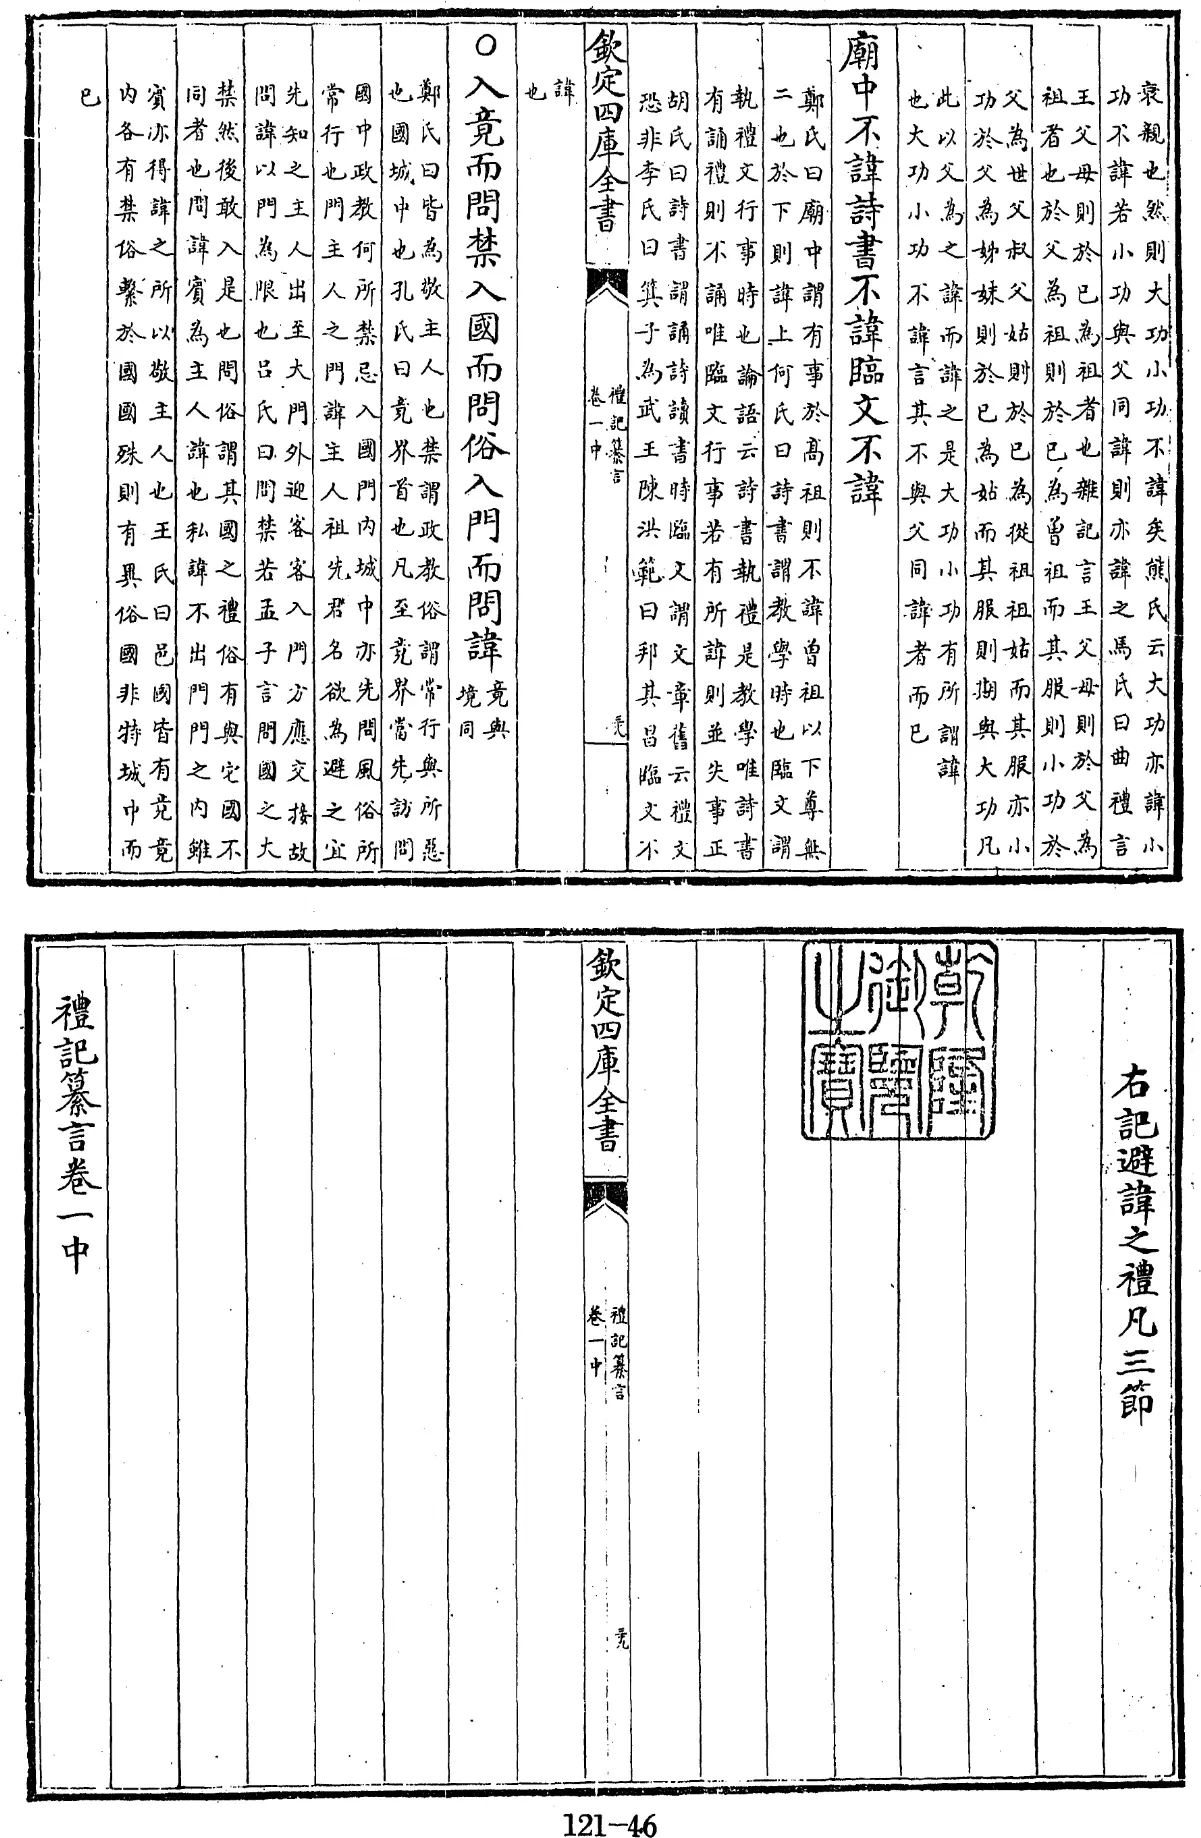 衰親也然則大功小功不諱矣熊氏云大功亦諱小
功不諱若小功與父同諱則亦諱之馬氏曰曲禮言
王父母則於已為祖者也雜記言王父母則於父為
祖者也於父為祖則於已為曾祖而其服則小功於
父為世父叔父姑則於已為從祖祖姑而其服亦小
功於父為姊妹則於已為姑而其服則期與大功凡
此以父為之諱而諱之是大功小功有所謂諱
也大功小功不諱言其不與父同諱者而已
廟中不諱詩書不諱臨文不諱
鄭氏曰廟中謂有事於髙祖則不諱曾祖以下尊無
二也於下則諱上何氏曰詩書謂教學時也臨文謂
執禮文行事時也論語云詩書執禮是教學唯詩書
有誦禮則不誦唯臨文行事若有所諱則並失事正
胡氏曰詩書謂誦詩讀書時臨文謂文章舊云禮文
恐非李氏曰箕子為武王陳洪範曰邦其昌臨文不
欽定四庫全書
禮記纂言
卷一中
諱
也
○入竟而問禁入國而問俗入門而問諱竟與
境同
鄭氏曰皆為敬主人也禁謂政教俗謂常行與所惡
也國城中也孔氏曰竟界首也凡至竟界當先訪問
國中政教何所禁忌入國門内城中亦先問風俗所
常行也門主人之門諱主人祖先君名欲為避之宜
先知之主人出至大門外迎客客入門方應交接故
問諱以門為限也吕氏曰問禁若孟子言問國之大
禁然後敢入是也問俗謂其國之禮俗有與它國不
同者也問諱賓為主人諱也私諱不出門門之内雖
賓亦得諱之所以敬主人也王氏曰邑國皆有竟竟
内各有禁俗繫於國國殊則有異俗國非特城中而
已
右記避諱之禮凡三節
乾隆
御覽
之寶
欽定四庫全書
禮記纂言
卷一中
禮記纂言卷一中
121-46